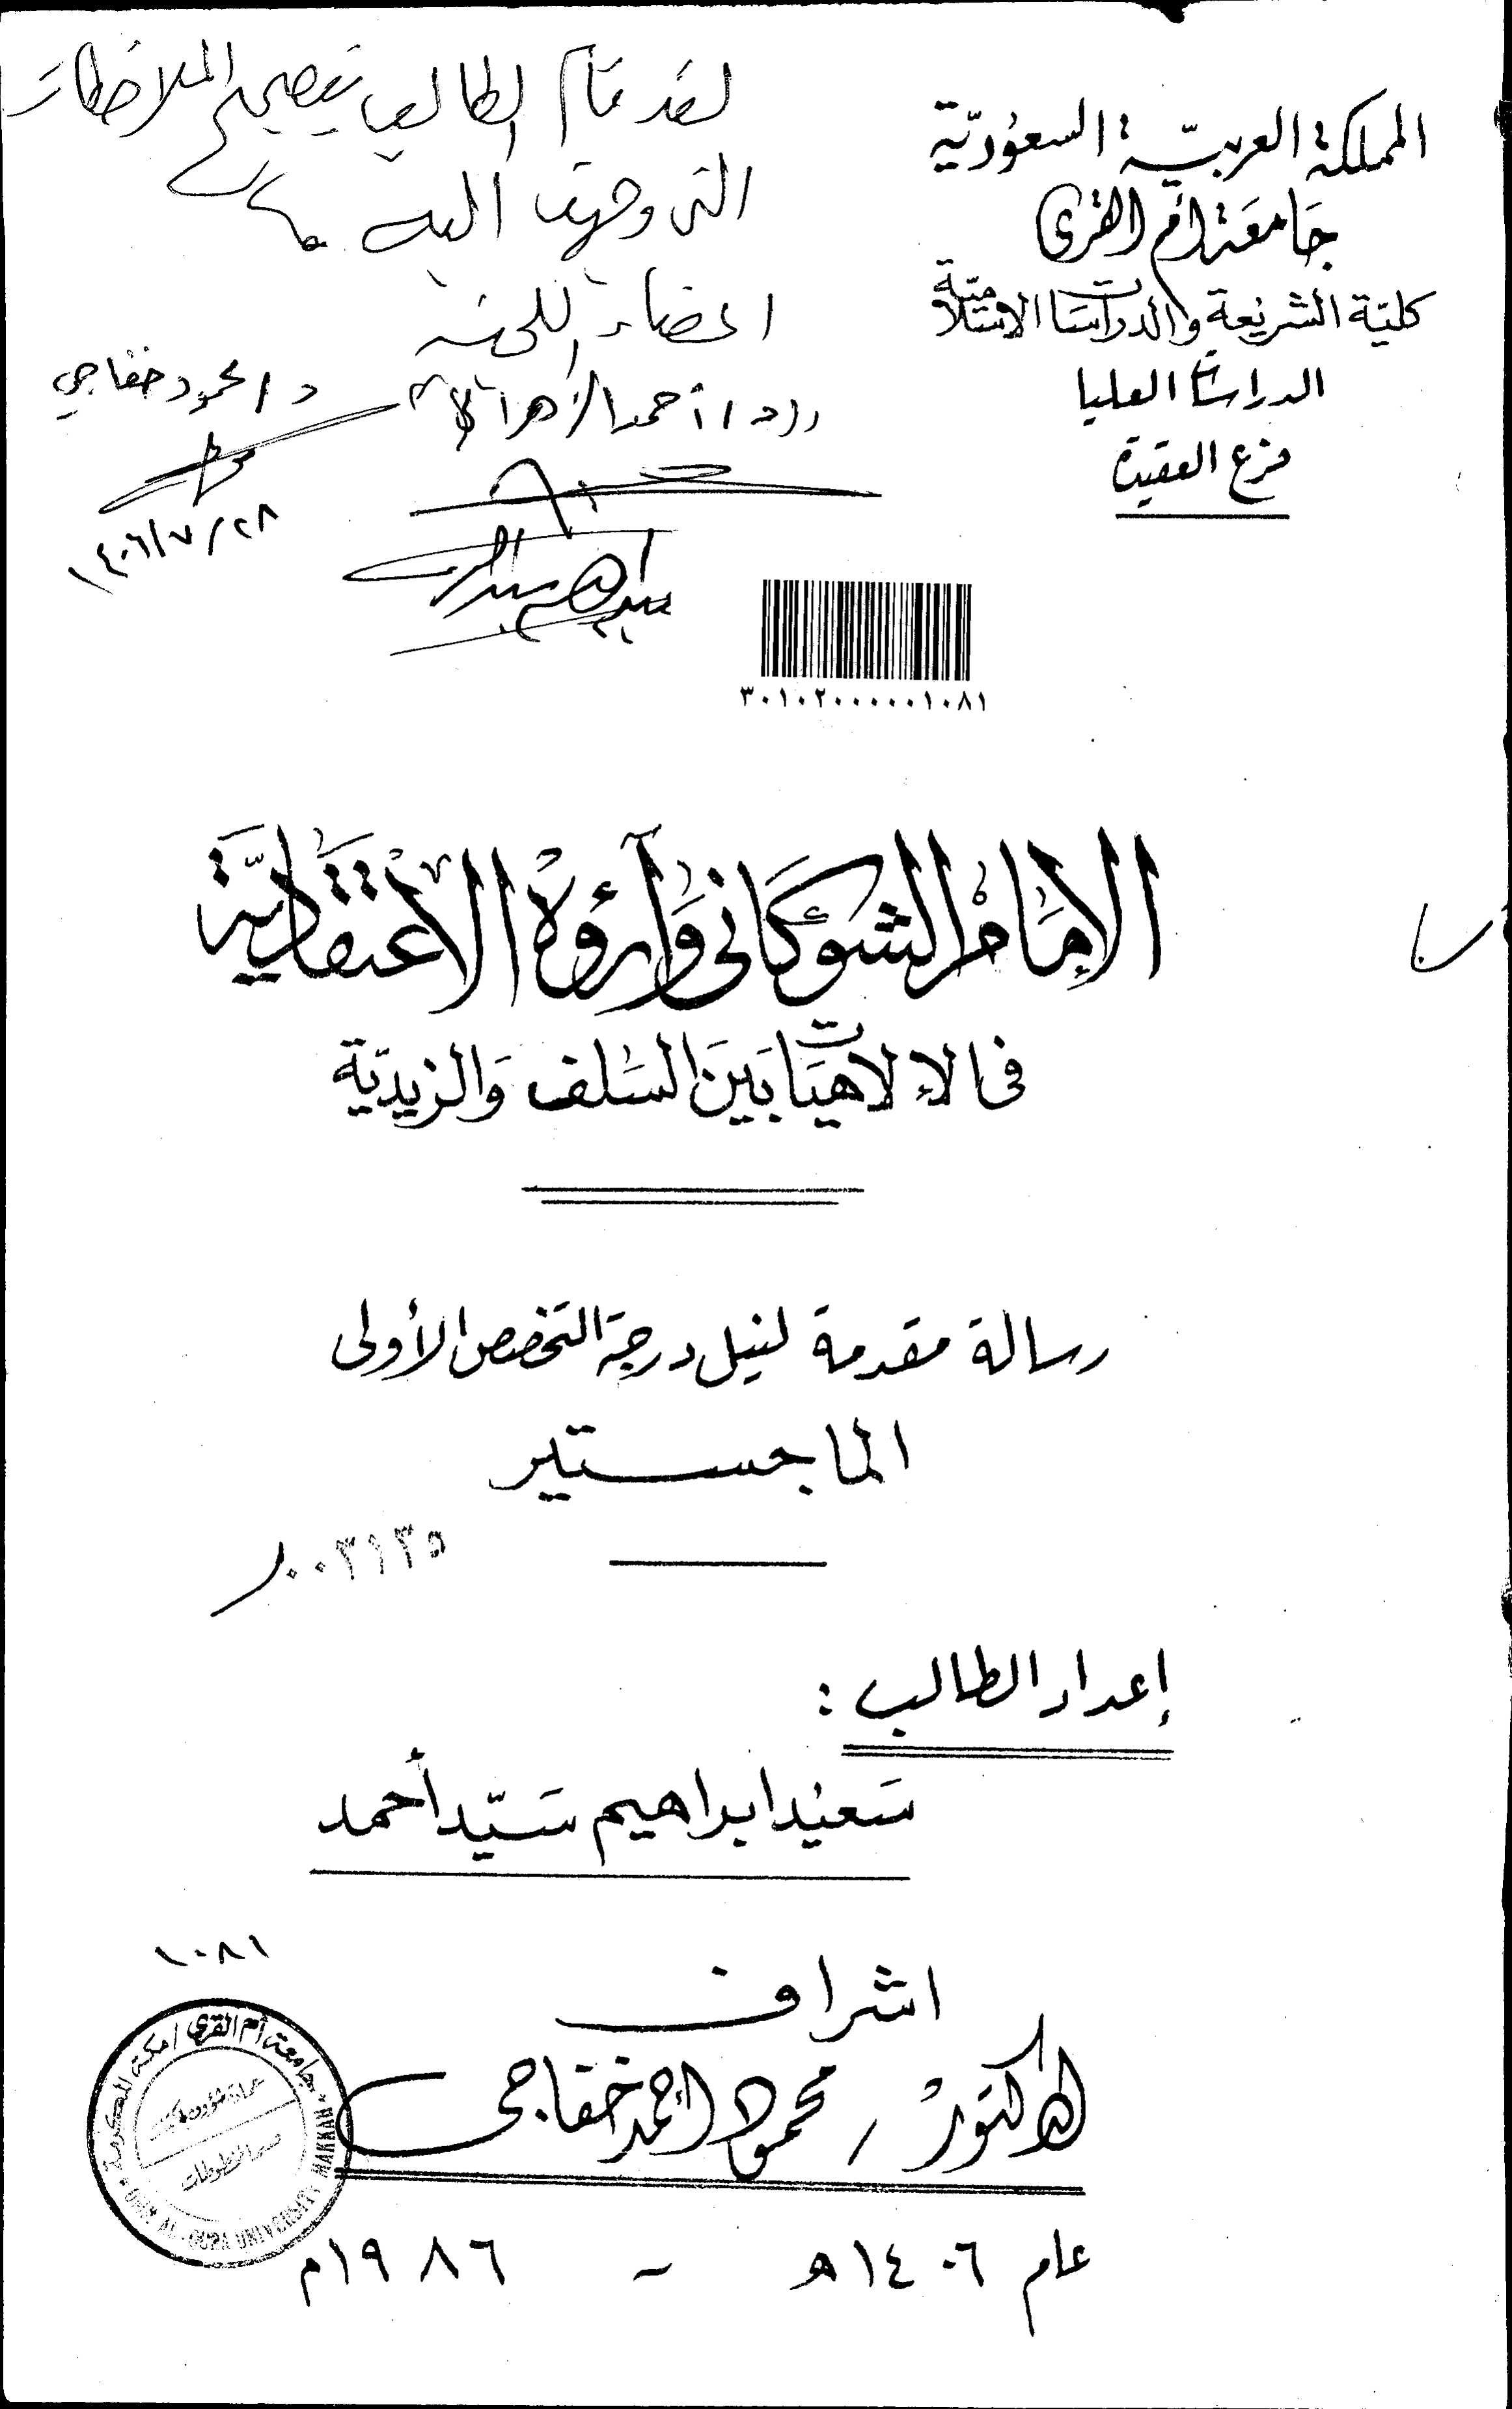 المملكة العربيّة السعوديّة
جامعة أم القرى
كليّة الشريعة والدراسات الإسلاميّة
الدراسات العليا
فرع العقيدة
لقد قام الطالب بتصحيح الملاحظات
التى وجهت اليه
اعضاء اللجنه
د/ محمود خفاجي
١٤٠٦/٧/٢٨
٣٠١٠٢٠٠٠٠٠١٠٨١
الإمام الشوكاني وآرؤه الاعتقاديّة
فى الإلاهيات بين السلف والزيديّة
رسالة مقدمة لنيل درجة التخصص الأولى
الماجستير
٠٠٣١٣٥
إعداد الطالب :
سعيد ابراهيم سيّد أحمد
١٠٨١
اشراف
الدكتور / محمود احمد خفاجى
جامعة أم القرى / مكة المكرمة
MAKKAH
عام ١٤٠٦ه - ١٩٨٦م